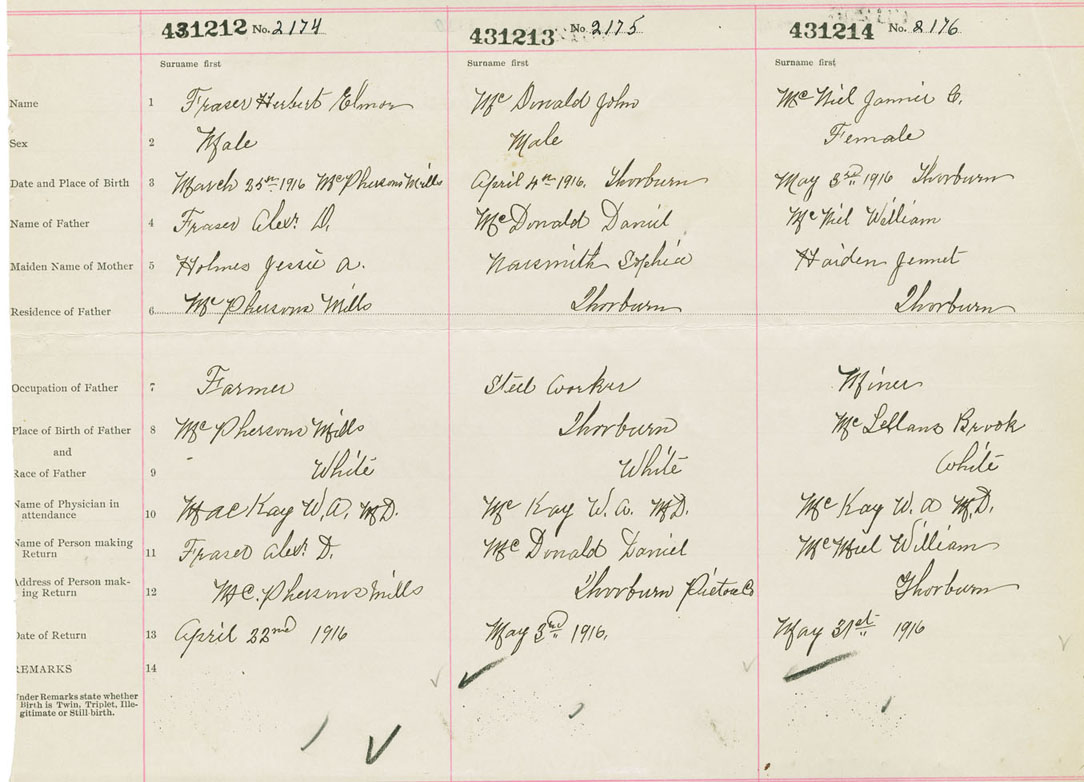 431212 No. 2174 431213 No. 2175 431214 No. 2176
Surname first Surname first Surname first
Name 1 Fraser Herbert Elmor Mc Donald John Mc Niel Jannie
Sex 2 Male Male Female
Date and Place of Birth 3 March 25th 1916 McPhersons Mills April 4th 1916. Thorburn May 3rd 1916 Thorburn
Name of Father 4 Fraser Alexr D. McDonald Daniel McNiel William
Maiden Name of Mother 5 Holmes Jessie A. Naismith Sophia Haiden Jennet
Residence of Father 6 McPhersons Mills Thorburn Thorburn
Occupation of Father 7 Farmer Steel Worker Miner
Place of Birth of Father 8 McPhersons Mills Thorburn Brook
and
Race of Father 9 White White White
Name of Physician in
attendance 10 MacKay W.A. M.D. McKay W.A. M.D. McKay W.A M.D.
Name of Person making
Return 11 Fraser Alexr D. McDonald Daniel McNiel William
Address of Person mak-
ing Return 12 Mc.Phersons Mills Thorburn Pictou Co Thorburn
Date of Return 13 April 22nd 1916 May 3rd 1916. May 31st 1916
REMARKS 14
Under Remarks state whether
Birth is Twin, Triplet, Ille-
gitimate or Still-birth.